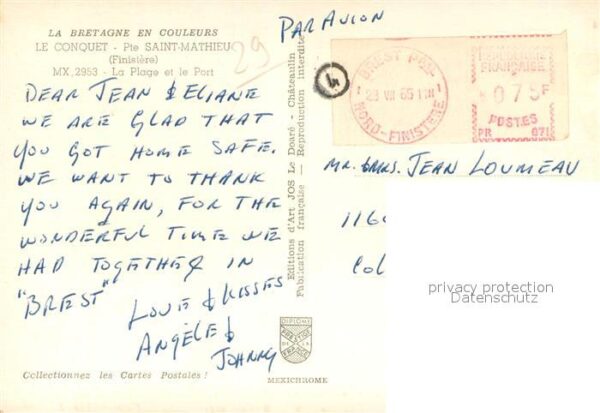 LA BRETAGNE EN COULEURS
LE CONQUET - Pte SAINT-MATHIEU
(Finistère)
MX. 2953 - La Plage et le Port
29
PAR AVION
DEAR JEAN & ELIANE
WE ARE GLAD THAT
YOU GOT HOME SAFE.
WE WANT TO THANK
YOU AGAIN, FOR THE
WONDERFUL TIME WE
HAD TOGETHER IN
"BREST"
LOVE & KISSES
ANGÈLE &
JOHNNY
Collectionnez les Cartes Postales !
Editions d'Art JOS Le Doaré - Châteaulin
Fabrication française - Reproduction interdite
DIPLOME
PRESTIGE
FRANCE
MEXICHROME
4
NORD-FINISTERE
REPUBLIQUE
FRANÇAISE
075F
POSTES
PR 071
MR. & MRS. JEAN LOUMEAU
116
Col
privacy protection
Datenschutz